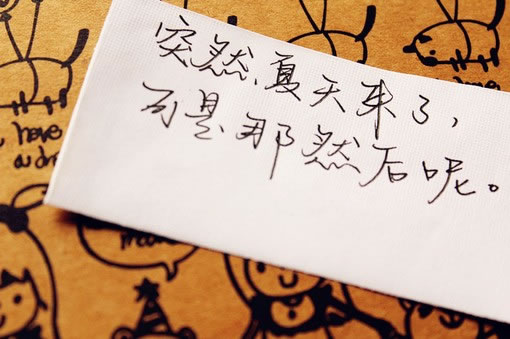 突然、夏天来了，
可是那然后呢。
have
a dr